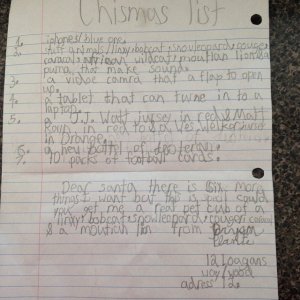 Chismas list
1. iphones/blue one.
2. stuff animals/linx, bobcat, snowleopard, couge,
caracal, african wildcat, moutian lion
puma, that make sound.
3. a vidoe camra that a flap to open
up.
4. a tablet that can turne in to a
laptop.
5. a J.J. Watt jursey in red, Matt
in red to a Wes Welker jursey
in Orange.
6. a new bottl of
7. 10 packs of football cards.
Dear santa there is six more
things I want but this is
you get me a real pet cub of a
linx, bobcat, snowleopard, cougar, caracal
& a moutian lion from
12
adress 12.